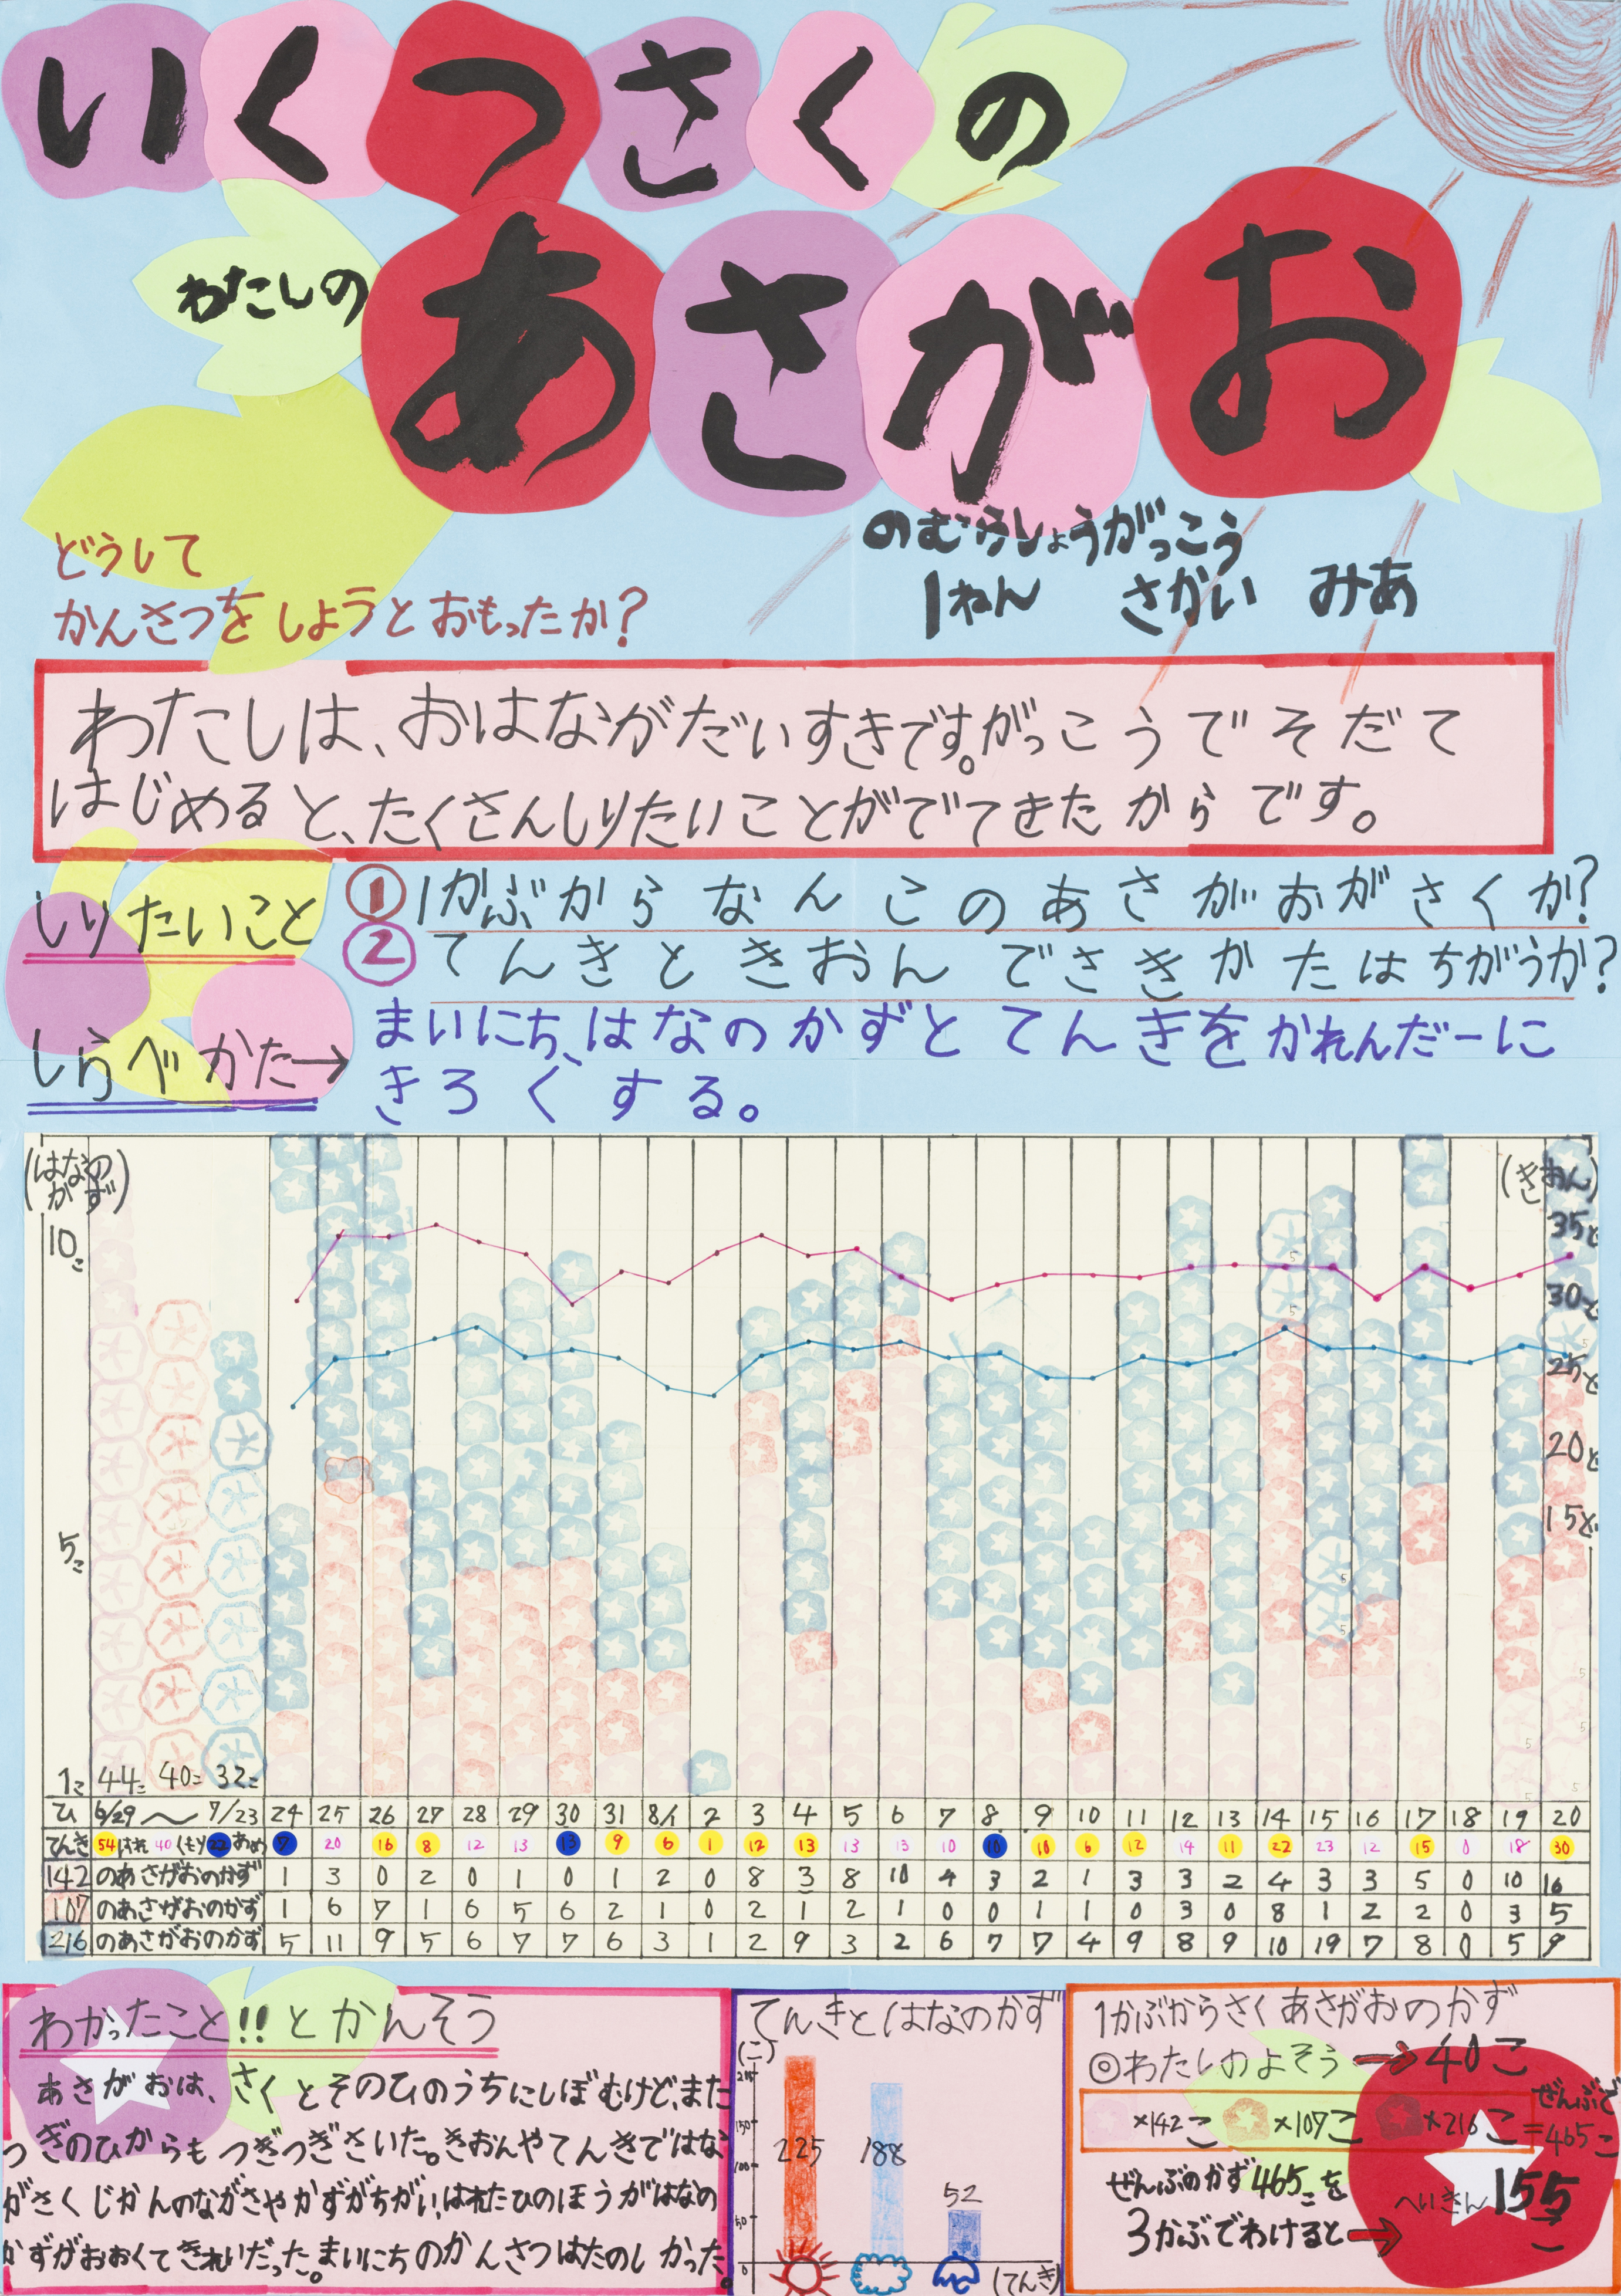 いくつさくの
わたしの
あさがお
のむらしょうがっこう
1ねん さかい みあ
どうして
かんさつをしようとおもったか?
わたしは、おはながだいすきです。がっこうでそだて
はじめると、たくさんしりたいことがでてきたからです。
しりたいこと
①1かぶからなんこのあさがおがさくか?
②てんきときおんでさきかたはちがうか?
しらべかた→
まいにち、はなのかずとてんきをかれんだーに
きろくする。
(はなの
かず)
(きおん)
10こ
5こ
1こ
35ど
30ど
25ど
20ど
15ど
44こ 40こ 32こ
ひ 6/29 〜 7/23 24 25 26 27 28 29 30 31 8/1 2 3 4 5 6 7 8 9 10 11 12 13 14 15 16 17 18 19 20
てんき 54はれ 40くもり 22あめ 7 20 16 8 12 13 13 9 6 1 12 13 13 13 10 10 10 6 12 14 11 22 23 12 15 0 18 30
142のあさがおのかず 1 3 0 2 0 1 0 1 2 0 8 3 8 10 4 3 2 1 3 3 2 4 3 3 5 0 10 16
107のあさがおのかず 1 6 7 1 6 5 6 2 1 0 2 1 2 1 0 0 1 1 0 3 0 8 1 2 2 0 3 5
216のあさがおのかず 5 11 9 5 6 7 7 6 3 1 2 9 3 2 6 7 7 4 9 8 9 10 19 7 8 0 5 9
わかったこと!!とかんそう
あさがおは、さくとそのひのうちにしぼむけど、また
つぎのひからもつぎつぎさいた。きおんやてんきではな
がさくじかんのながさやかずがちがい、はれたひのほうがはなの
かずがおおくてきれいだった。まいにちのかんさつはたのしかった。
てんきとはなのかず
(こ)
150
100
50
0
225
188
52
(てんき)
1かぶからさくあさがおのかず
◎わたしのよそう→40こ
×142こ ×107こ ×216こ
ぜんぶで
=465こ
ぜんぶのかず465こを
3かぶでわけると→
へいきん155こ